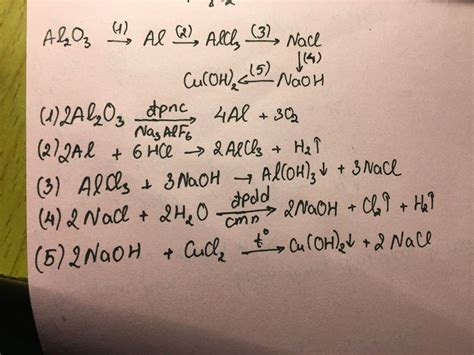 Al₂O₃ (1)→ Al (2)→ AlCl₃ (3)→ NaCl
↓(4)
Cu(OH)₂ ←(5) NaOH
(1) 2Al₂O₃ đpnc→ Na₃AlF₆ 4Al + 3O₂
(2) 2Al + 6HCl → 2AlCl₃ + H₂↑
(3) AlCl₃ + 3NaOH → Al(OH)₃↓ + 3NaCl
(4) 2NaCl + 2H₂O đpdd→ cmn 2NaOH + Cl₂↑ + H₂↑
(5) 2NaOH + CuCl₂ t°→ Cu(OH)₂↓ + 2NaCl